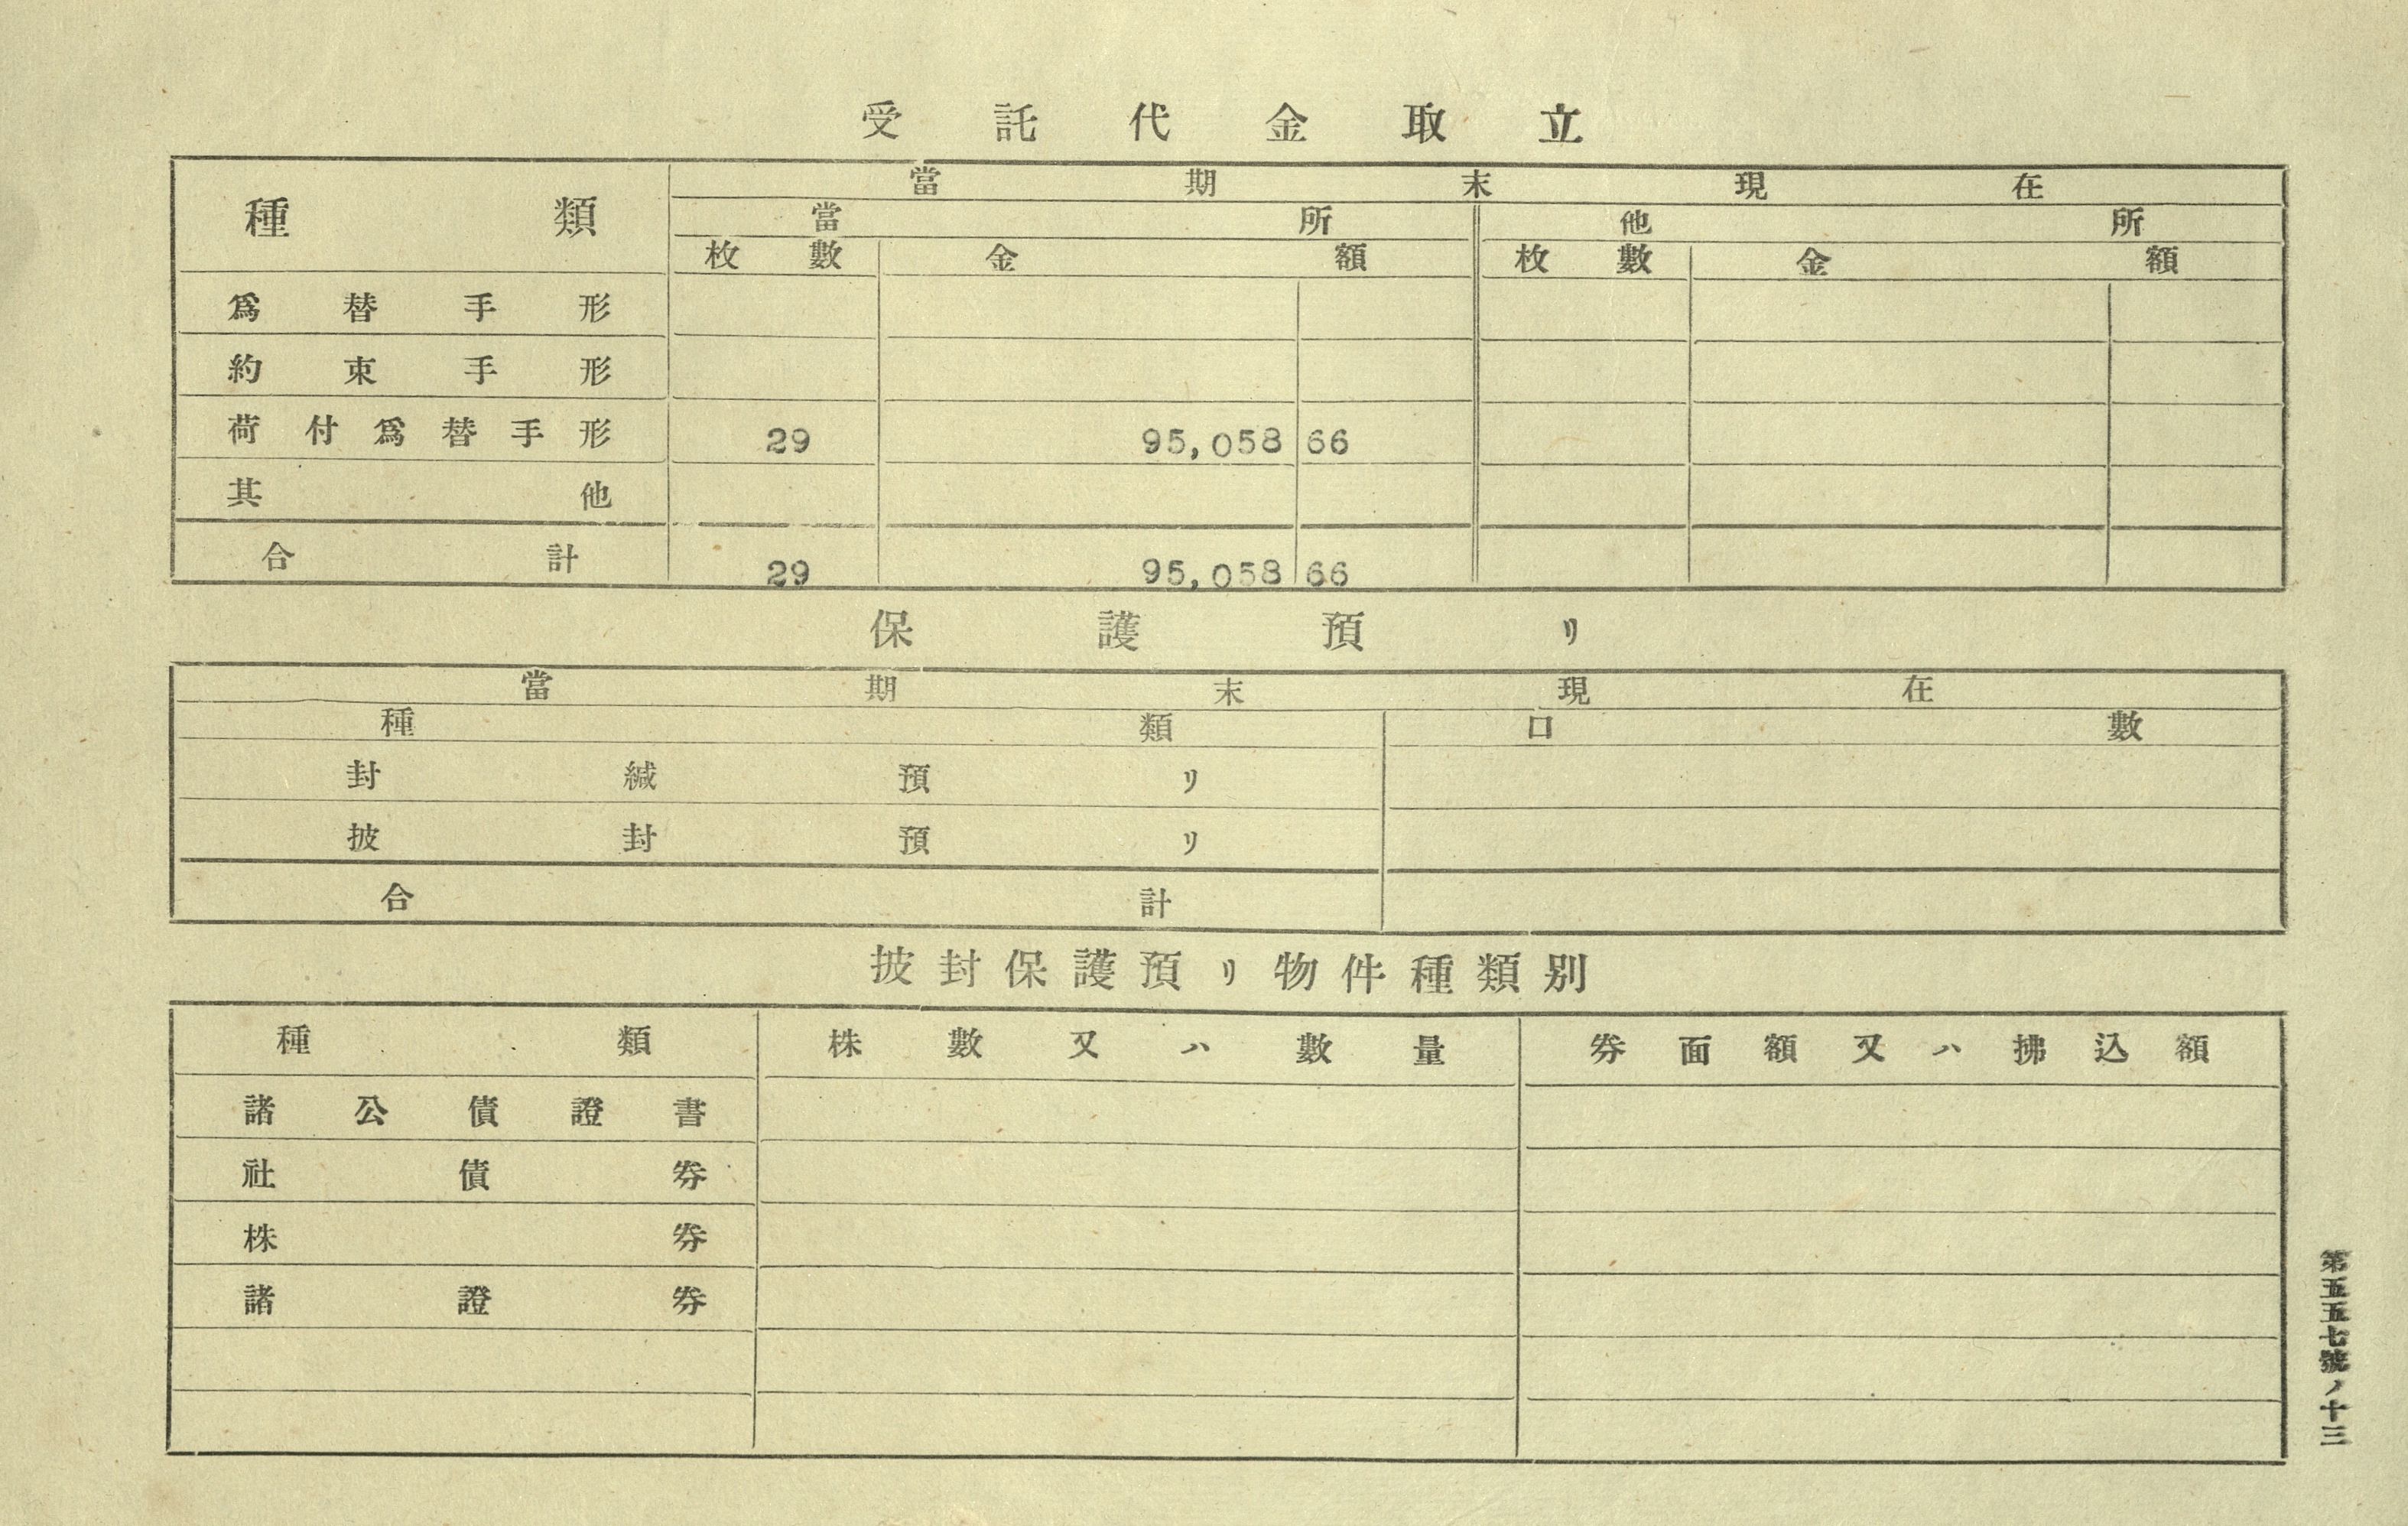 受託代金取立
種類 當期末現在
當所 他所
枚數 金額 枚數 金額
爲替手形
約束手形
荷付爲替手形 29 95,058 66
其他
合計 29 95,058 66
保護預リ
當期末現在
種類 口數
封緘預リ
披封預リ
合計
披封保護預リ物件種類別
種類 株數又ハ數量 券面額又ハ拂込額
諸公債證書
社債券
株券
諸證券
第五五七號ノ十三